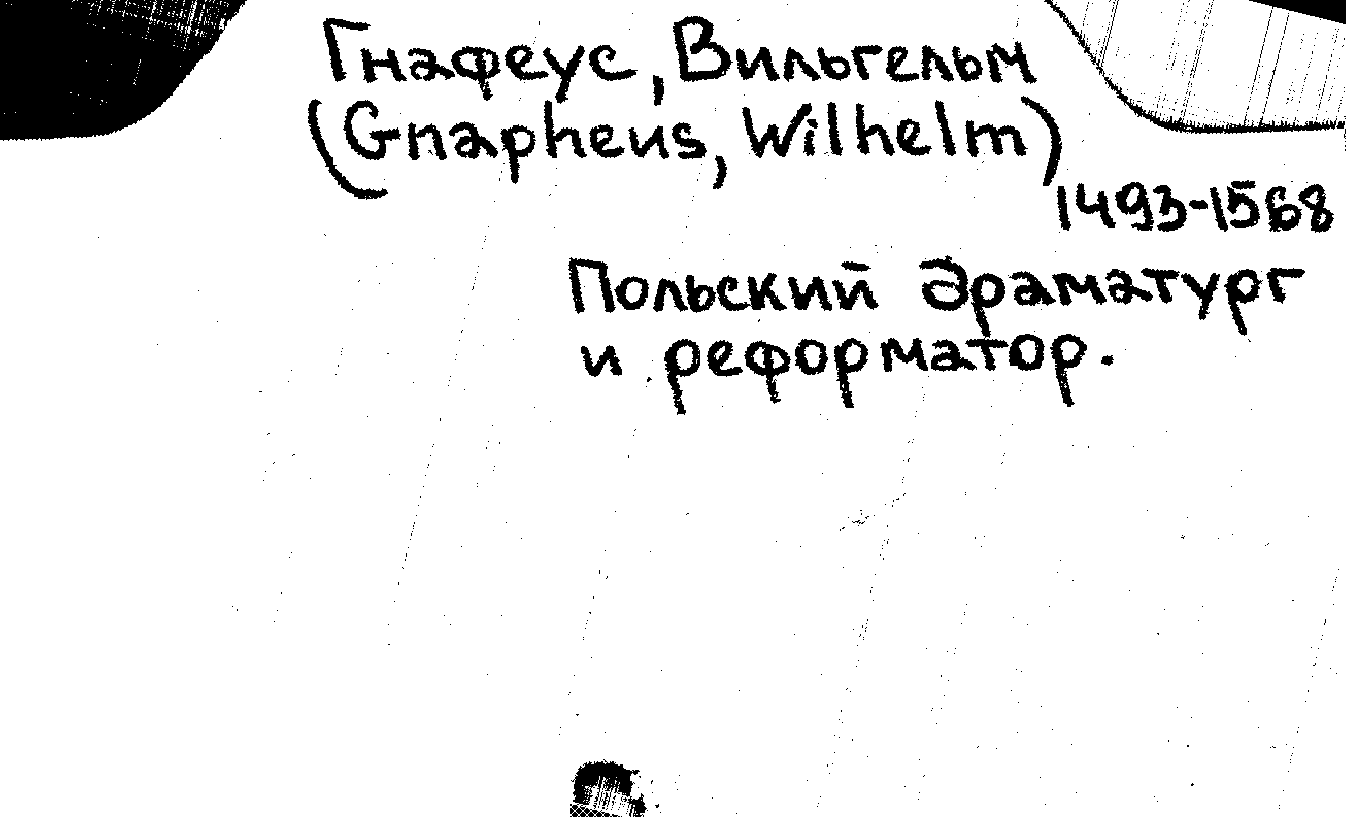 Гнафеус, Вильгельм
(Gnapheus, Wilhelm)
1493-1568
Польский драматург
и реформатор.